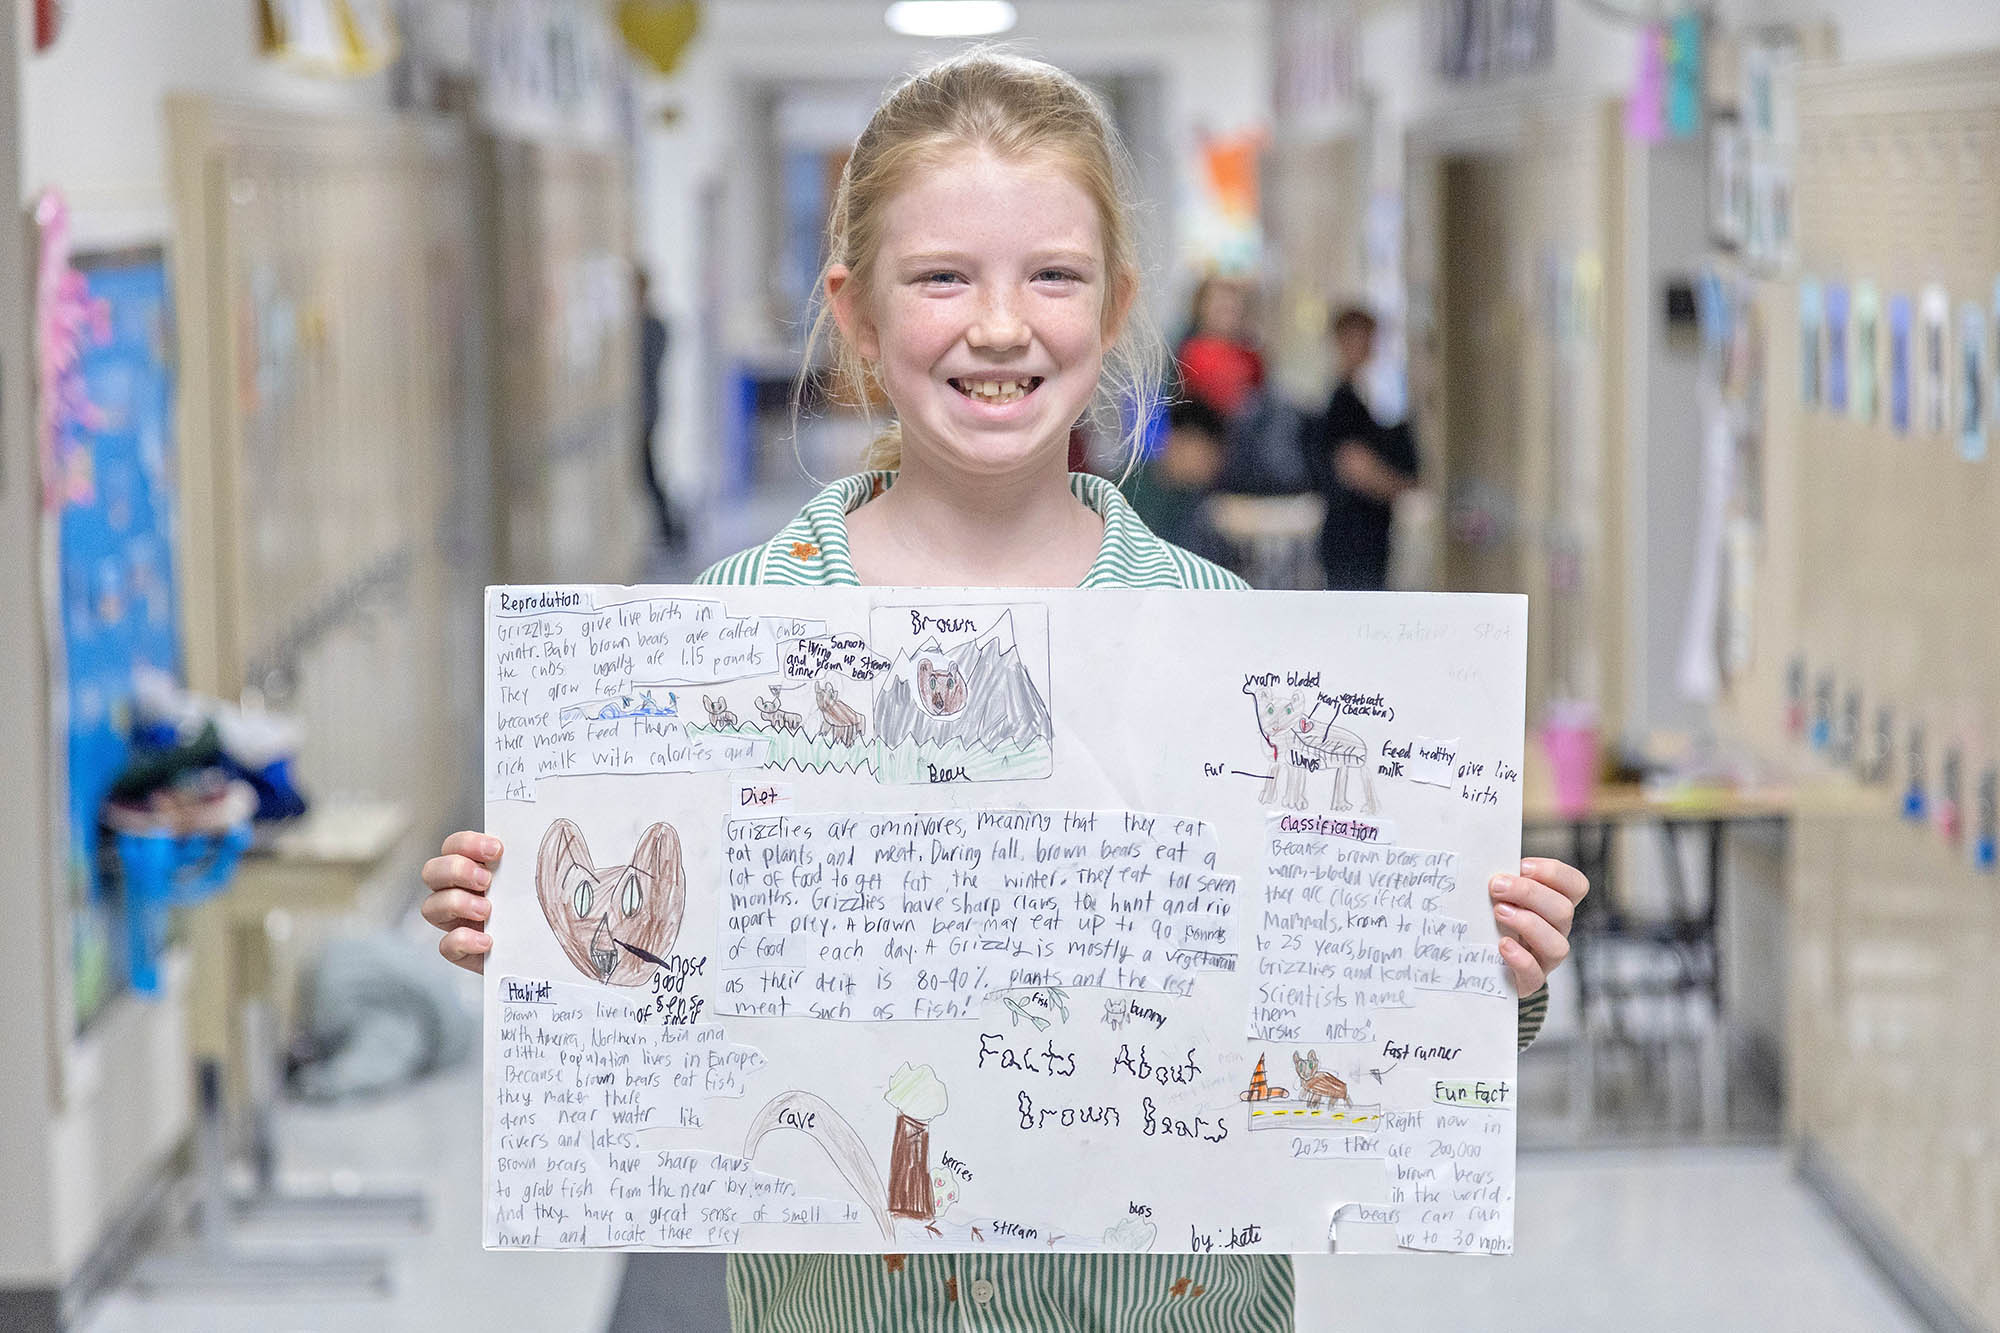 Reprodution
Grizzlys give live birth in
wintr. Baby brown bears are called cubs
the cubs ugally are 1.15 pounds
They grow fast
because
there moms feed them
rich milk with calories and
fat.
Flying Samon
and brown up stream
dinner bears
Brown
Bear
warm bloded
heart
vertebrate
(backben)
lungs
Fur
Feed healthy
milk
give live
birth
Diet
Grizzlies are omnivores, meaning that they eat
eat plants and meat. During fall, brown bears eat a
lot of food to get fat the winter. They eat for seven
months. Grizzlies have sharp claws to hunt and rip
apart prey. A brown bear may eat up to 90 pounds
of food each day. A Grizzly is mostly a vegetarian
as their deit is 80-90% plants and the rest
meat such as fish!
Fish
bunny
Classification
Because brown bears are
warm-bloded vertebrates,
they are classified as
Mammals. Known to live up
to 25 years, brown bears include
Grizzlies and Kodiak bears.
Scientists name
them
"Ursus arctos".
nose
good
sense
of smell
Habitat
Brown bears live in
North America, Northern, Asia and
a little population lives in Europe.
Because brown bears eat fish,
they make there
dens near water like
rivers and lakes.
Brown bears have sharp claws
to grab fish from the near by water.
And they have a great sense of smell to
hunt and locate there prey
Facts About
Brown Bears
cave
berries
stream
by: kate
Fast runner
Fun Fact
Right now in
2025 there are 200,000
brown bears
in the world.
bears can run
up to 30 mph.